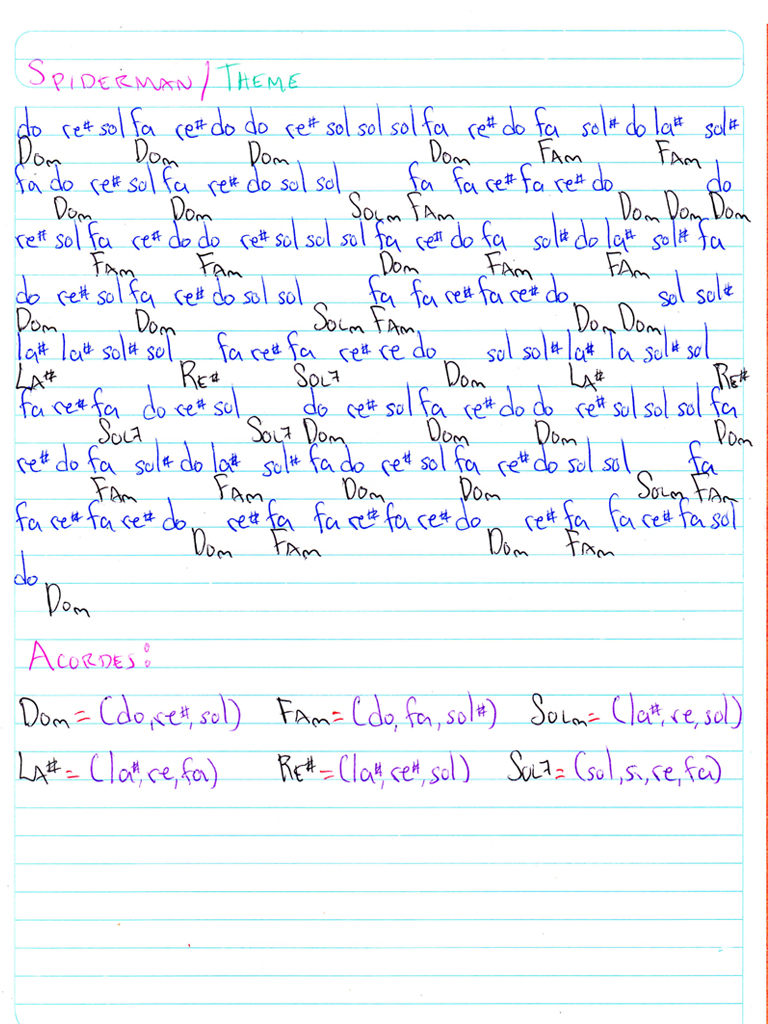 SPIDERMAN/THEME
do re# sol fa re# do do re# sol sol sol fa re# do fa sol# do la# sol#
Dom Dom Dom Dom FAm FAm
fa do re# sol fa re# do sol sol fa fa re# fa re# do do
Dom Dom SOLm FAm Dom Dom Dom
re# sol fa re# do do re# sol sol sol fa re# do fa sol# do la# sol# fa
FAm FAm Dom FAm FAm
do re# sol fa re# do sol sol fa fa re# fa re# do sol sol#
Dom Dom SOLm FAm Dom Dom
la# la# sol# sol fa re# fa re# re do sol sol# la# la sol# sol
LA# RE# SOL7 Dom LA# RE#
fa re# fa do re# sol do re# sol fa re# do do re# sol sol sol fa
SOL7 SOL7 Dom Dom Dom Dom
re# do fa sol# do la# sol# fa do re# sol fa re# do sol sol fa
FAm FAm Dom Dom SOLm FAm
fa re# fa re# do re# fa fa re# fa re# do re# fa fa re# fa sol
Dom FAm Dom FAm
do
Dom
ACORDES:
Dom = (do, re#, sol) FAm = (do, fa, sol#) SOLm = (la#, re, sol)
LA# = (la#, re, fa) RE# = (la#, re#, sol) SOL7 = (sol, si, re, fa)